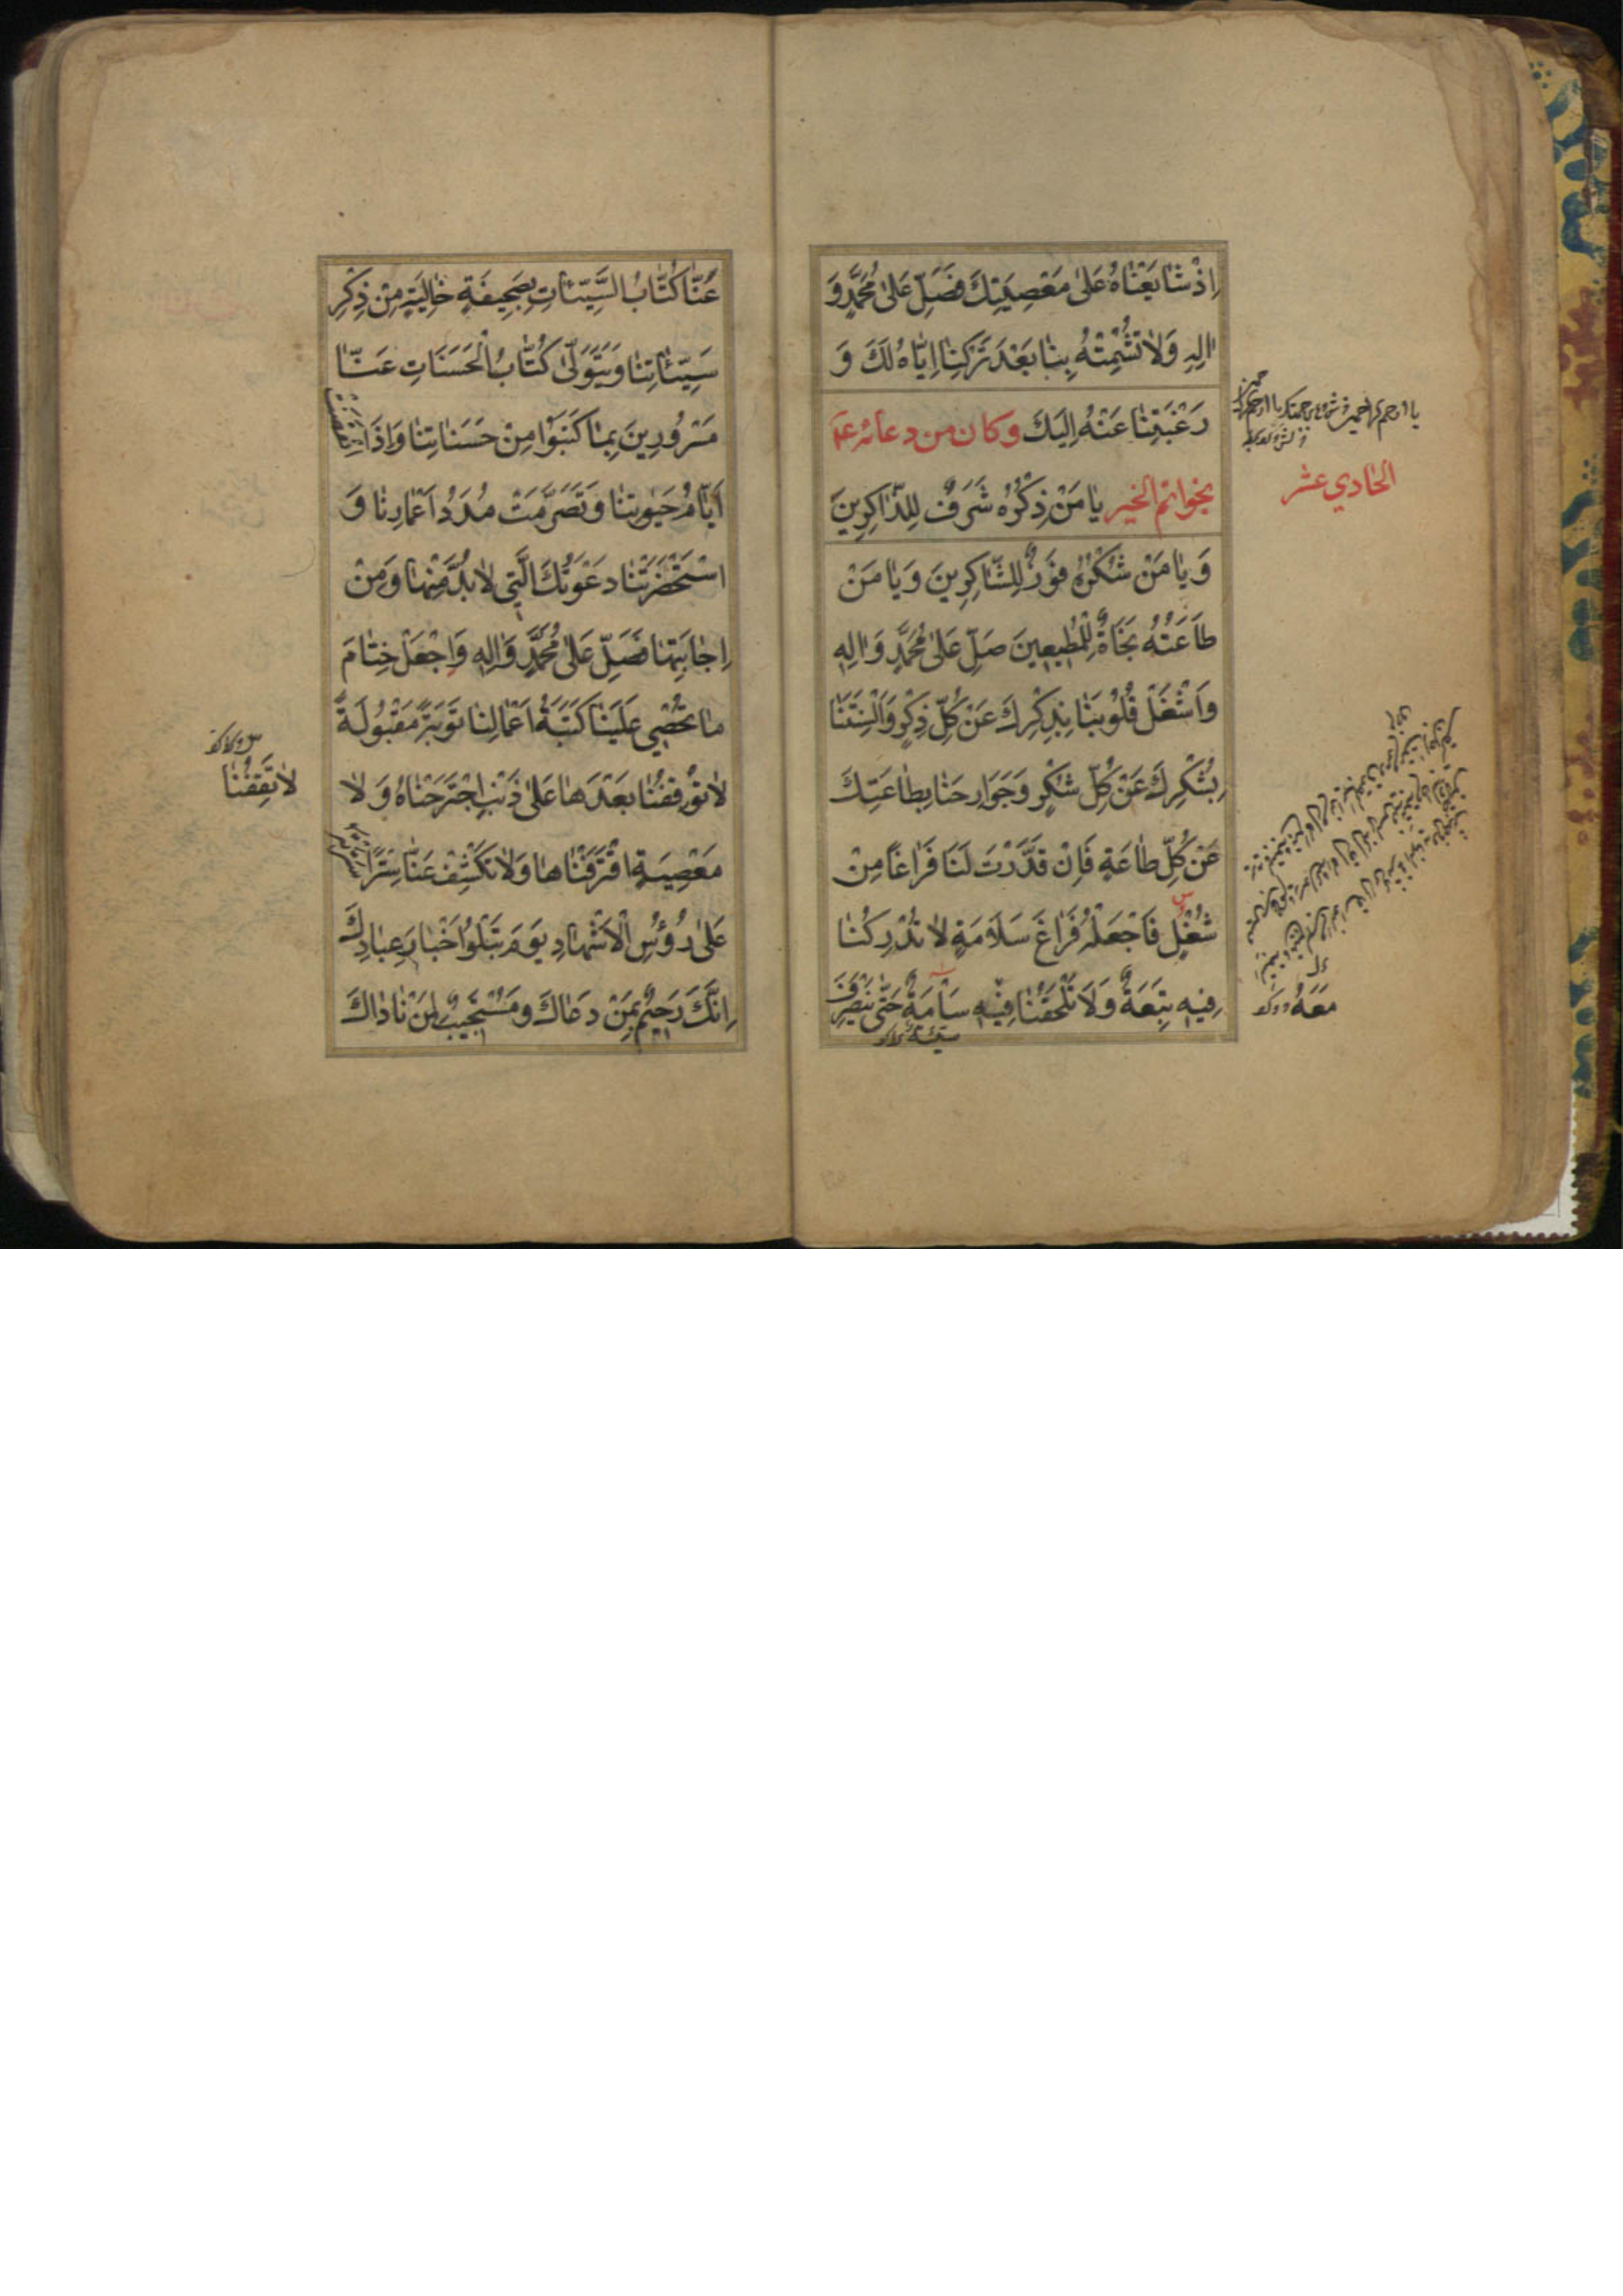 اِذْ شٰايَعْنٰاهُ عَلىٰ مَعْصِيَتِكَ فَصَلِّ عَلىٰ مُحَمَّدٍ وَ
اٰلِهِ وَلاٰ تُشْمِتْهُ بِنٰا بَعْدَ تَرْكِنٰا اِيّٰاهُ لَكَ وَ
رَغْبَتِنٰا عَنْهُ اِلَيْكَ وكان من دعائه ع
بخواتم الخير يٰا مَنْ ذِكْرُهُ شَرَفٌ لِلذّٰاكِرِينَ
وَ يٰا مَنْ شُكْرُهُ فَوْزٌ لِلشّٰاكِرِينَ وَ يٰا مَنْ
طٰاعَتُهُ نَجٰاةٌ لِلْمُطِيعِينَ صَلِّ عَلىٰ مُحَمَّدٍ وَ اٰلِهِ
وَاشْغَلْ قُلُوبَنٰا بِذِكْرِكَ عَنْ كُلِّ ذِكْرٍ وَ اَلْسِنَتَنٰا
بِشُكْرِكَ عَنْ كُلِّ شُكْرٍ وَجَوَارِحَنٰا بِطٰاعَتِكَ
عَنْ كُلِّ طٰاعَةٍ فَاِنْ قَدَّرْتَ لَنٰا فَرٰاغًا مِنْ
شُغْلٍ فَاجْعَلْهُ فَرٰاغَ سَلاٰمَةٍ لاٰ تُدْرِكُنٰا
فِيهِ تَبِعَةٌ وَلاَ تَلْحَقُنٰا فِيْهِ سَأْمَةٌ حَتّٰى يَنْصَرِفَ
الحادي عشر
مَعَهُ
عَنّٰا كُتّٰابُ السَّيِّئٰاتِ بِصَحِيفَةٍ خٰالِيَةٍ مِنْ ذِكْرِ
سَيِّئٰاتِنٰا وَ يَتَوَلّىٰ كُتّٰابُ الْحَسَنَاتِ عَنّٰا
مَسْرُورِينَ بِمٰا كَتَبُوا مِنْ حَسَنٰاتِنٰا وَاِذَا انْقَضَتْ
اَيّٰامُ حَيٰوتِنٰا وَ تَصَرَّمَتْ مُدَدُ اَعْمٰارِنٰا وَ
اسْتَحْضَرَتْنٰا دَعْوَتُكَ الَّتِي لاٰ بُدَّ مِنْهٰا وَمِنْ
اِجٰابَتِهٰا فَصَلِّ عَلىٰ مُحَمَّدٍ وَ اٰلِهِ وَ اجْعَلْ خِتٰامَ
مٰا تُحْصِي عَلَيْنٰا كَتَبَةُ اَعْمٰالِنٰا تَوْبَةً مَقْبُولَةً
لاٰ تُوقِفُنٰا بَعْدَهٰا عَلىٰ ذَنْبٍ اجْتَرَحْنٰاهُ وَ لاٰ
مَعْصِيَةٍ اقْتَرَفْنٰاهٰا وَلاٰ تَكْشِفْ عَنّٰا سِتْرًا سَتَرْتَهُ
عَلىٰ رُؤُسِ الْاَشْهٰادِ يَوْمَ تَبْلُوا اَخْبٰارَ عِبٰادِكَ
اِنَّكَ رَحِيْمٌ بِمَنْ دَعٰاكَ وَ مُسْتَجِيبٌ لِمَنْ نٰادٰاكَ
لاٰ تَقِفُنٰا